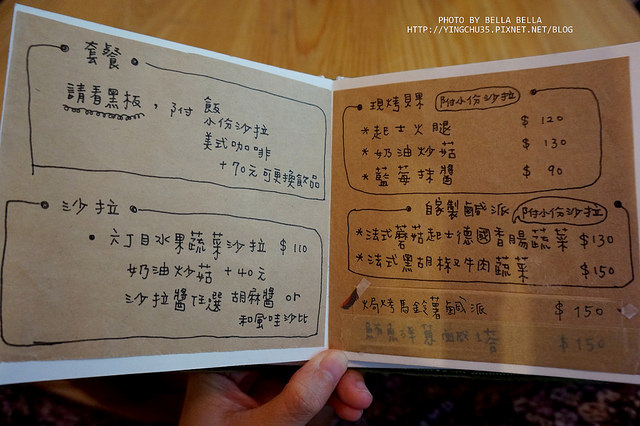 PHOTO BY BELLA BELLA
HTTP://YINGCHU35.PIXNET.NET/BLOG
套餐
請看黑板，附 飯
小份沙拉
美式咖啡
+70元可更換飲品
沙拉
• 六丁目水果蔬菜沙拉 $110
奶油炒菇 +40元
沙拉醬任選 胡麻醬 or
和風哇沙比
現烤貝果 附小份沙拉
*起士火腿 $120
*奶油炒菇 $130
*藍莓抹醬 $90
自家製鹹派 附小份沙拉
*法式蘑菇起士德國香腸蔬菜 $130
*法式黑胡椒牛肉蔬菜 $150
焗烤馬鈴薯鹹派 $150
洋蔥鹹塔 $150